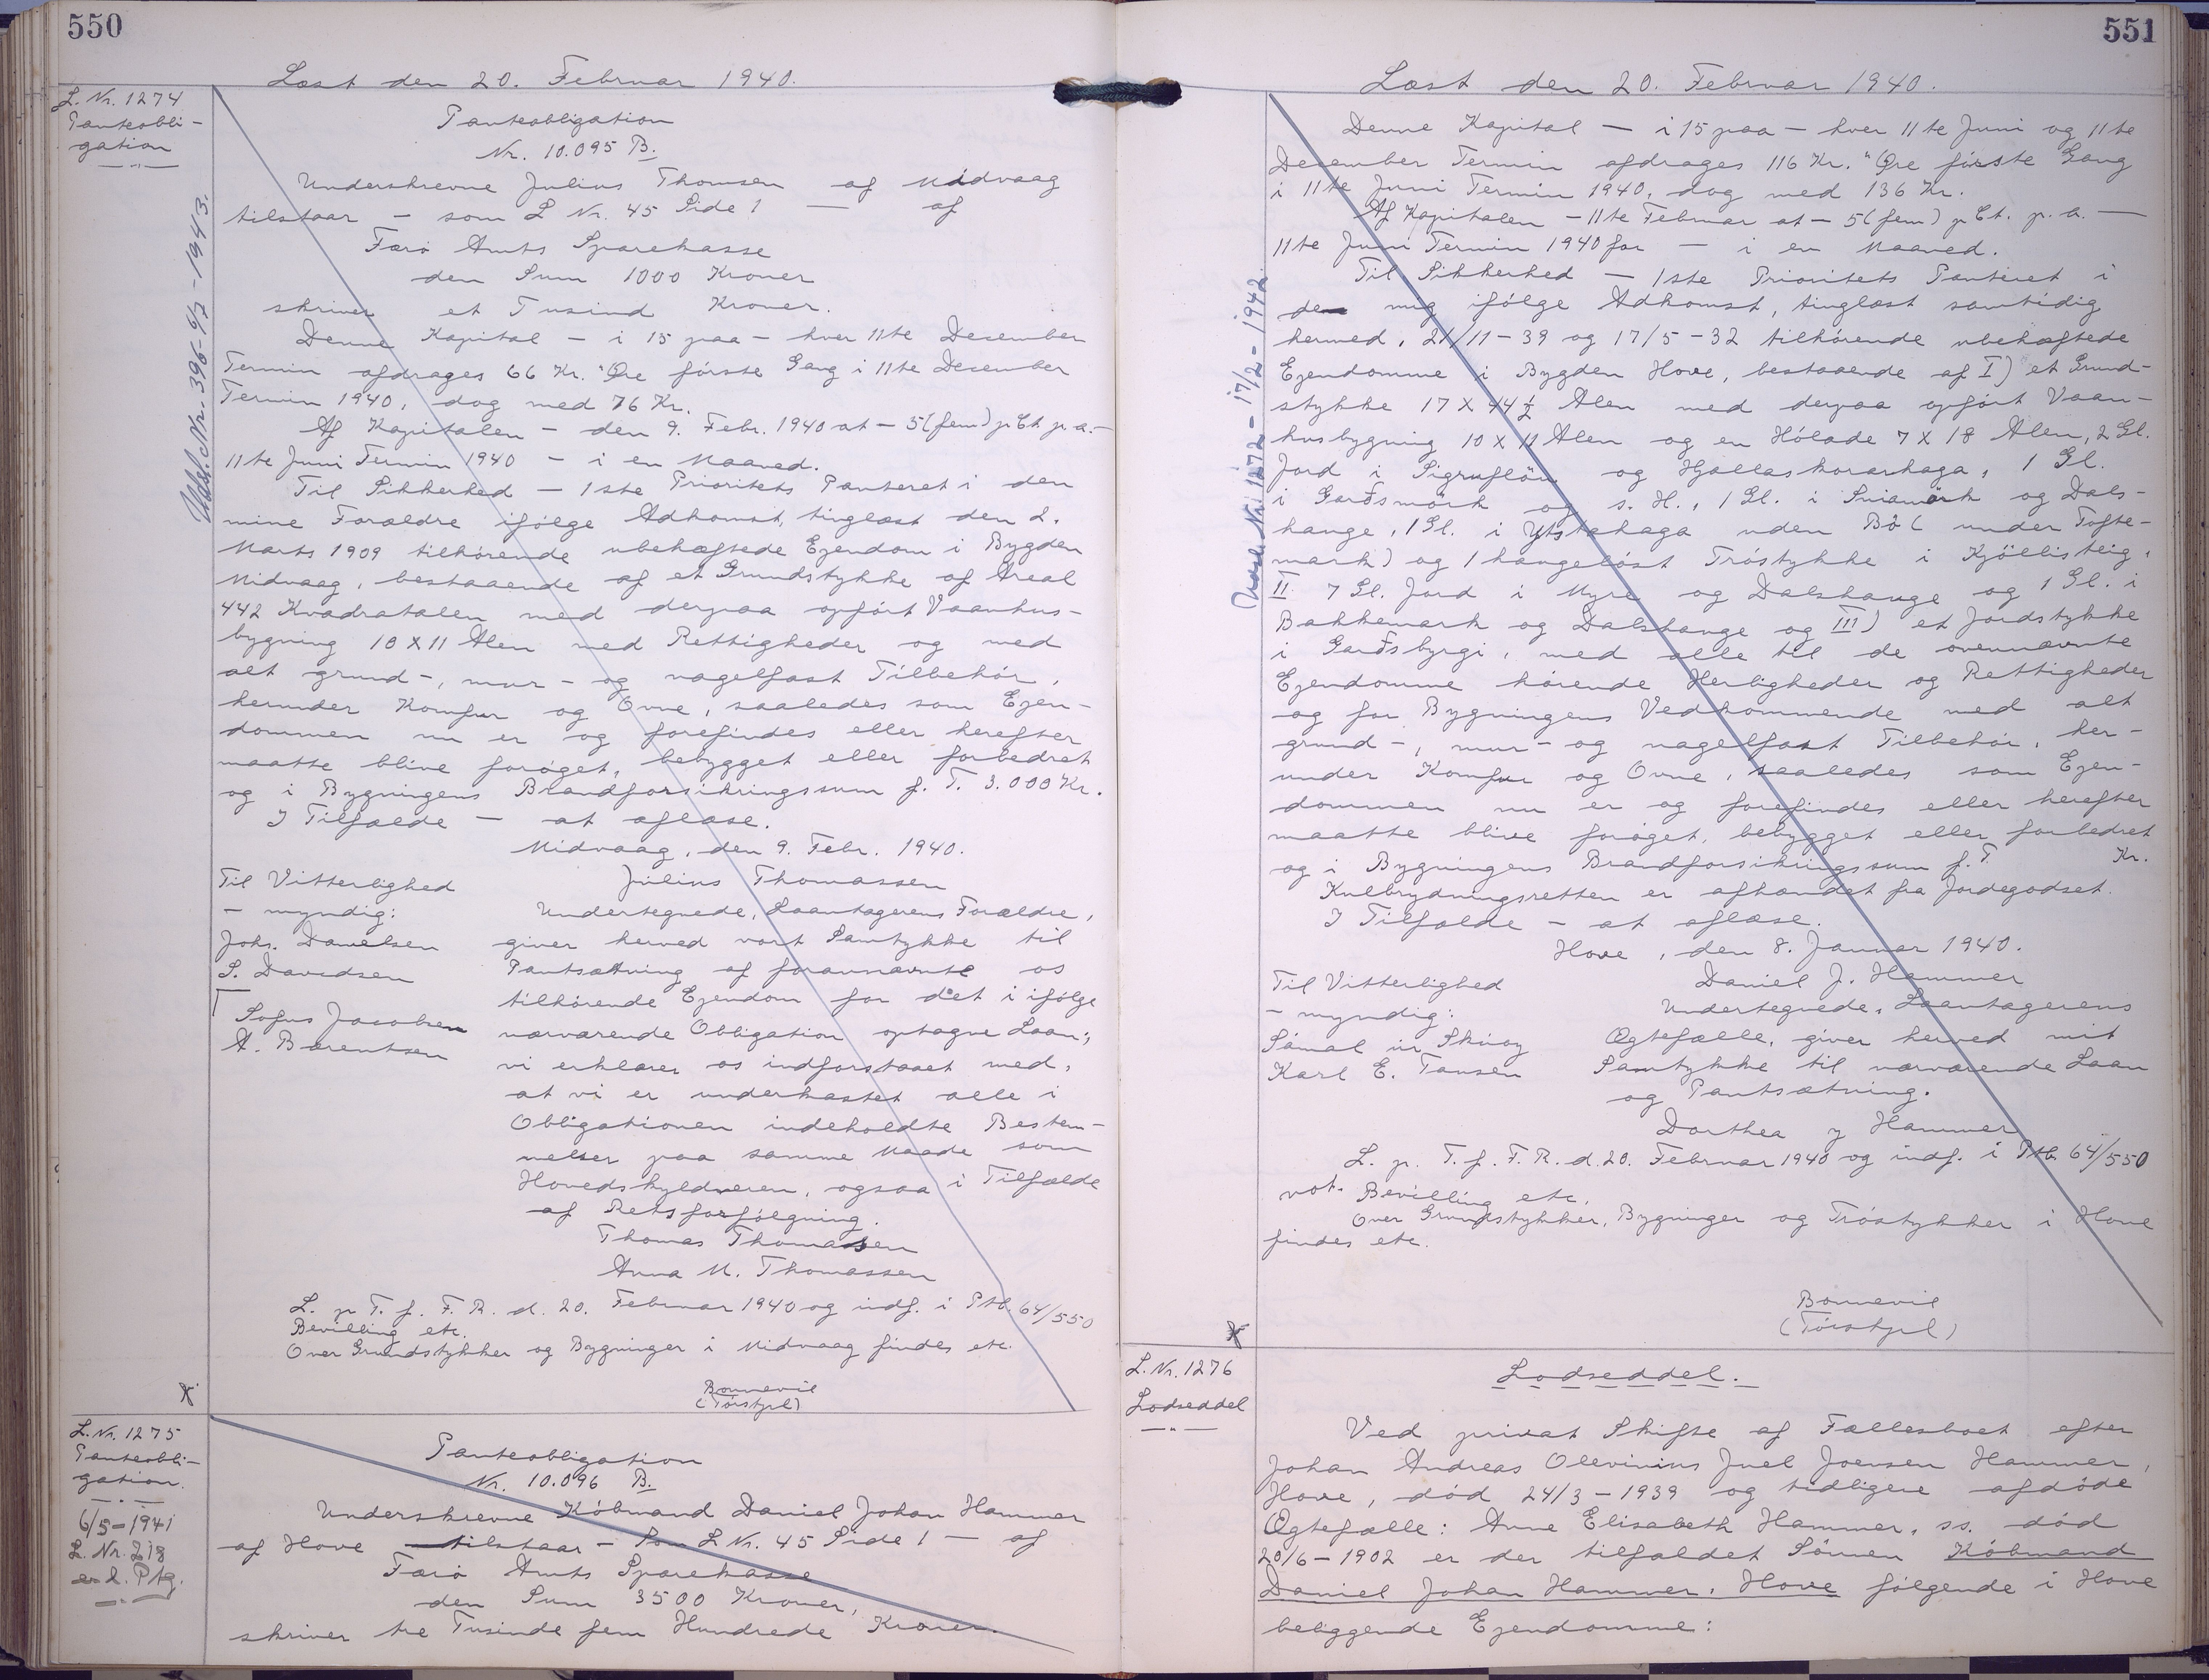 550
Læst den 20. Februar 1940.
L. Nr. 1274
Panteobli-
gation
Udsl. Nr. 396 - 9/7 - 1943.
Panteobligation
Nr. 10.095 B.
Underskrevne Julius Thomsen af Midvaag
tilstaar - som L Nr. 45 Side 1 — af
Færö Amts Sparekasse
den Sum 1000 Kroner
skriver et Tusind Kroner.
Denne Kapital - i 15 paa - hver 11te Desember
Termin afdrages 66 Kr. " Øre förste Gang i 11te Desember
Termin 1940, dog med 76 Kr.
Af Kapitalen - den 9. Febr. 1940 at - 5 (fem) p Ct p. a. -
11te Juni Termin 1940 - i en Maaned.
Til Sikkerhed - 1ste Prioritets Panteret i den
mine Forældre ifölge Adkomst, tinglæst den 2.
Marts 1909 tilhörende ubehæftede Ejendom i Bygden
Midvaag, bestaaende af et Grundstykke af Areal
442 Kvadratalen med derpaa opfört Vaanhus-
bygning 10 X 11 Alen med Rettigheder og med
alt grund-, mur- og nagelfast Tilbehör,
herunder Komfur og Ovne, saaledes som Ejen-
dommen nu er og forefindes eller herefter
maatte blive foröget, bebygget eller forbedret
og i Bygningens Brandforsikringssum f. T. 3.000 Kr.
I Tilfælde — at aflæse.
Midvaag, den 9. Febr. 1940.
Til Vitterlighed
- myndig:
Johs. Danielsen
S. Davidsen
Sofus Jacobsen
A. Barentsen
Julius Thomassen
Undertegnede, Laantagerens Forældre,
giver herved vort Samtykke til
Pantsætning af forannævnte os
tilhörende Ejendom for det i ifölge
nærværende Obligation optagne Laan;
vi erklærer os indforstaaet med,
at vi er underkastet alle i
Obligationen indeholdte Bestem-
melser paa samme Maade som
Hovedskyldneren, ogsaa i Tilfælde
af Retsforfölgning.
Thomas Thomassen
Anna M. Thomassen
L. p T. f. F. R. d. 20. Februar 1940 og indf. i Ptb. 64/550
Bevilling etc.
Over Grundstykker og Bygninger i Midvaag findes etc.
Bonnevie
(Tórstjrl)
L. Nr. 1275
Panteobli-
gation.
6/5 - 1941
L. Nr. 218
Panteobligation
Nr. 10.096 B.
Underskrevne Köbmand Daniel Johan Hammer
af Hove tilstaar - som L Nr. 45 Side 1 — af
Færö Amts Sparekasse
den Sum 3500 Kroner,
skriver tre Tusinde fem Hundrede Kroner.
551
Læst den 20. Februar 1940.
1272 - 17/2 - 1942.
Denne Kapital — i 15 paa — hver 11te Juni og 11te
Desember Termin afdrages 116 Kr. " Øre förste Gang
i 11te Juni Termin 1940, dog med 136 Kr.
Af Kapitalen - 11te Februar at - 5 (fem) p Ct. p. a. —
11te Juni Termin 1940 for — i en Maaned.
Til Sikkerhed — 1ste Prioritets Panteret i
de mig ifölge Adkomst, tinglæst samtidig
hermed, 21/11 - 39 og 17/5 - 32 tilhörende ubehæftede
Ejendomme i Bygden Hove, bestaaende af I) et Grund-
stykke 17 X 44 ½ Alen med derpaa opfört Vaan-
husbygning 10 X 11 Alen og en Hölade 7 X 18 Alen, 2 Gl.
Jord i Sigruflön og Hjallaskorarhaga, 1 Gl.
i Garðsmörk og s. H., 1 Gl. i Sniamörk og Dals-
hange, 1 Gl. i Ytstahaga uden Bö (under Tofte-
mark) og 1 hangelöst Tröstykke i Kjöllisteig,
II 7 Gl. Jord i Myre og Dalshange og 1 Gl. i
Bakkemark og Dalshange og III) et Jordstykke
i Garðsbyrgi, med alle til de ovennævnte
Ejendomme hörende Herligheder og Rettigheder
og for Bygningens Vedkommende med alt
grund-, mur- og nagelfast Tilbehör, her-
under Komfur og Ovne, saaledes som Ejen-
dommen nu er og forefindes eller herefter
maatte blive foröget, bebygget eller forbedret
og i Bygningens Brandforsikringssum f. T. Kr.
Kulbrydningsretten er afhændet fra Jordegodset.
I Tilfælde — at aflæse.
Hove, den 8. Januar 1940.
Til Vitterlighed
- myndig:
Sámal úr Skúvoy
Karl E. Tausen
Daniel J. Hammer
Undertegnede, Laantagerens
Ægtefælle, giver herved mit
Samtykke til nærværende Laan
og Pantsætning.
Dorthea J Hammer
L. p. T. f. F. R. d. 20. Februar 1940 og indf. i Ptb. 64/550
not. Bevilling etc.
Over Grundstykker, Bygninger og Tröstykker i Hove
findes etc.
Bonnevie
(Tórstjrl)
L. Nr. 1276
Lodseddel
Lodseddel.
Ved privat Skifte af Fællesboet efter
Johan Andreas Olevinius Juel Joensen Hammer,
Hove, död 24/3 - 1939 og tidligere afdöde
Ægtefælle: Anne Elisabeth Hammer, ss. död
20/6 - 1902 er der tilfaldet Sönnen Köbmand
Daniel Johan Hammer, Hove fölgende i Hove
beliggende Ejendomme: